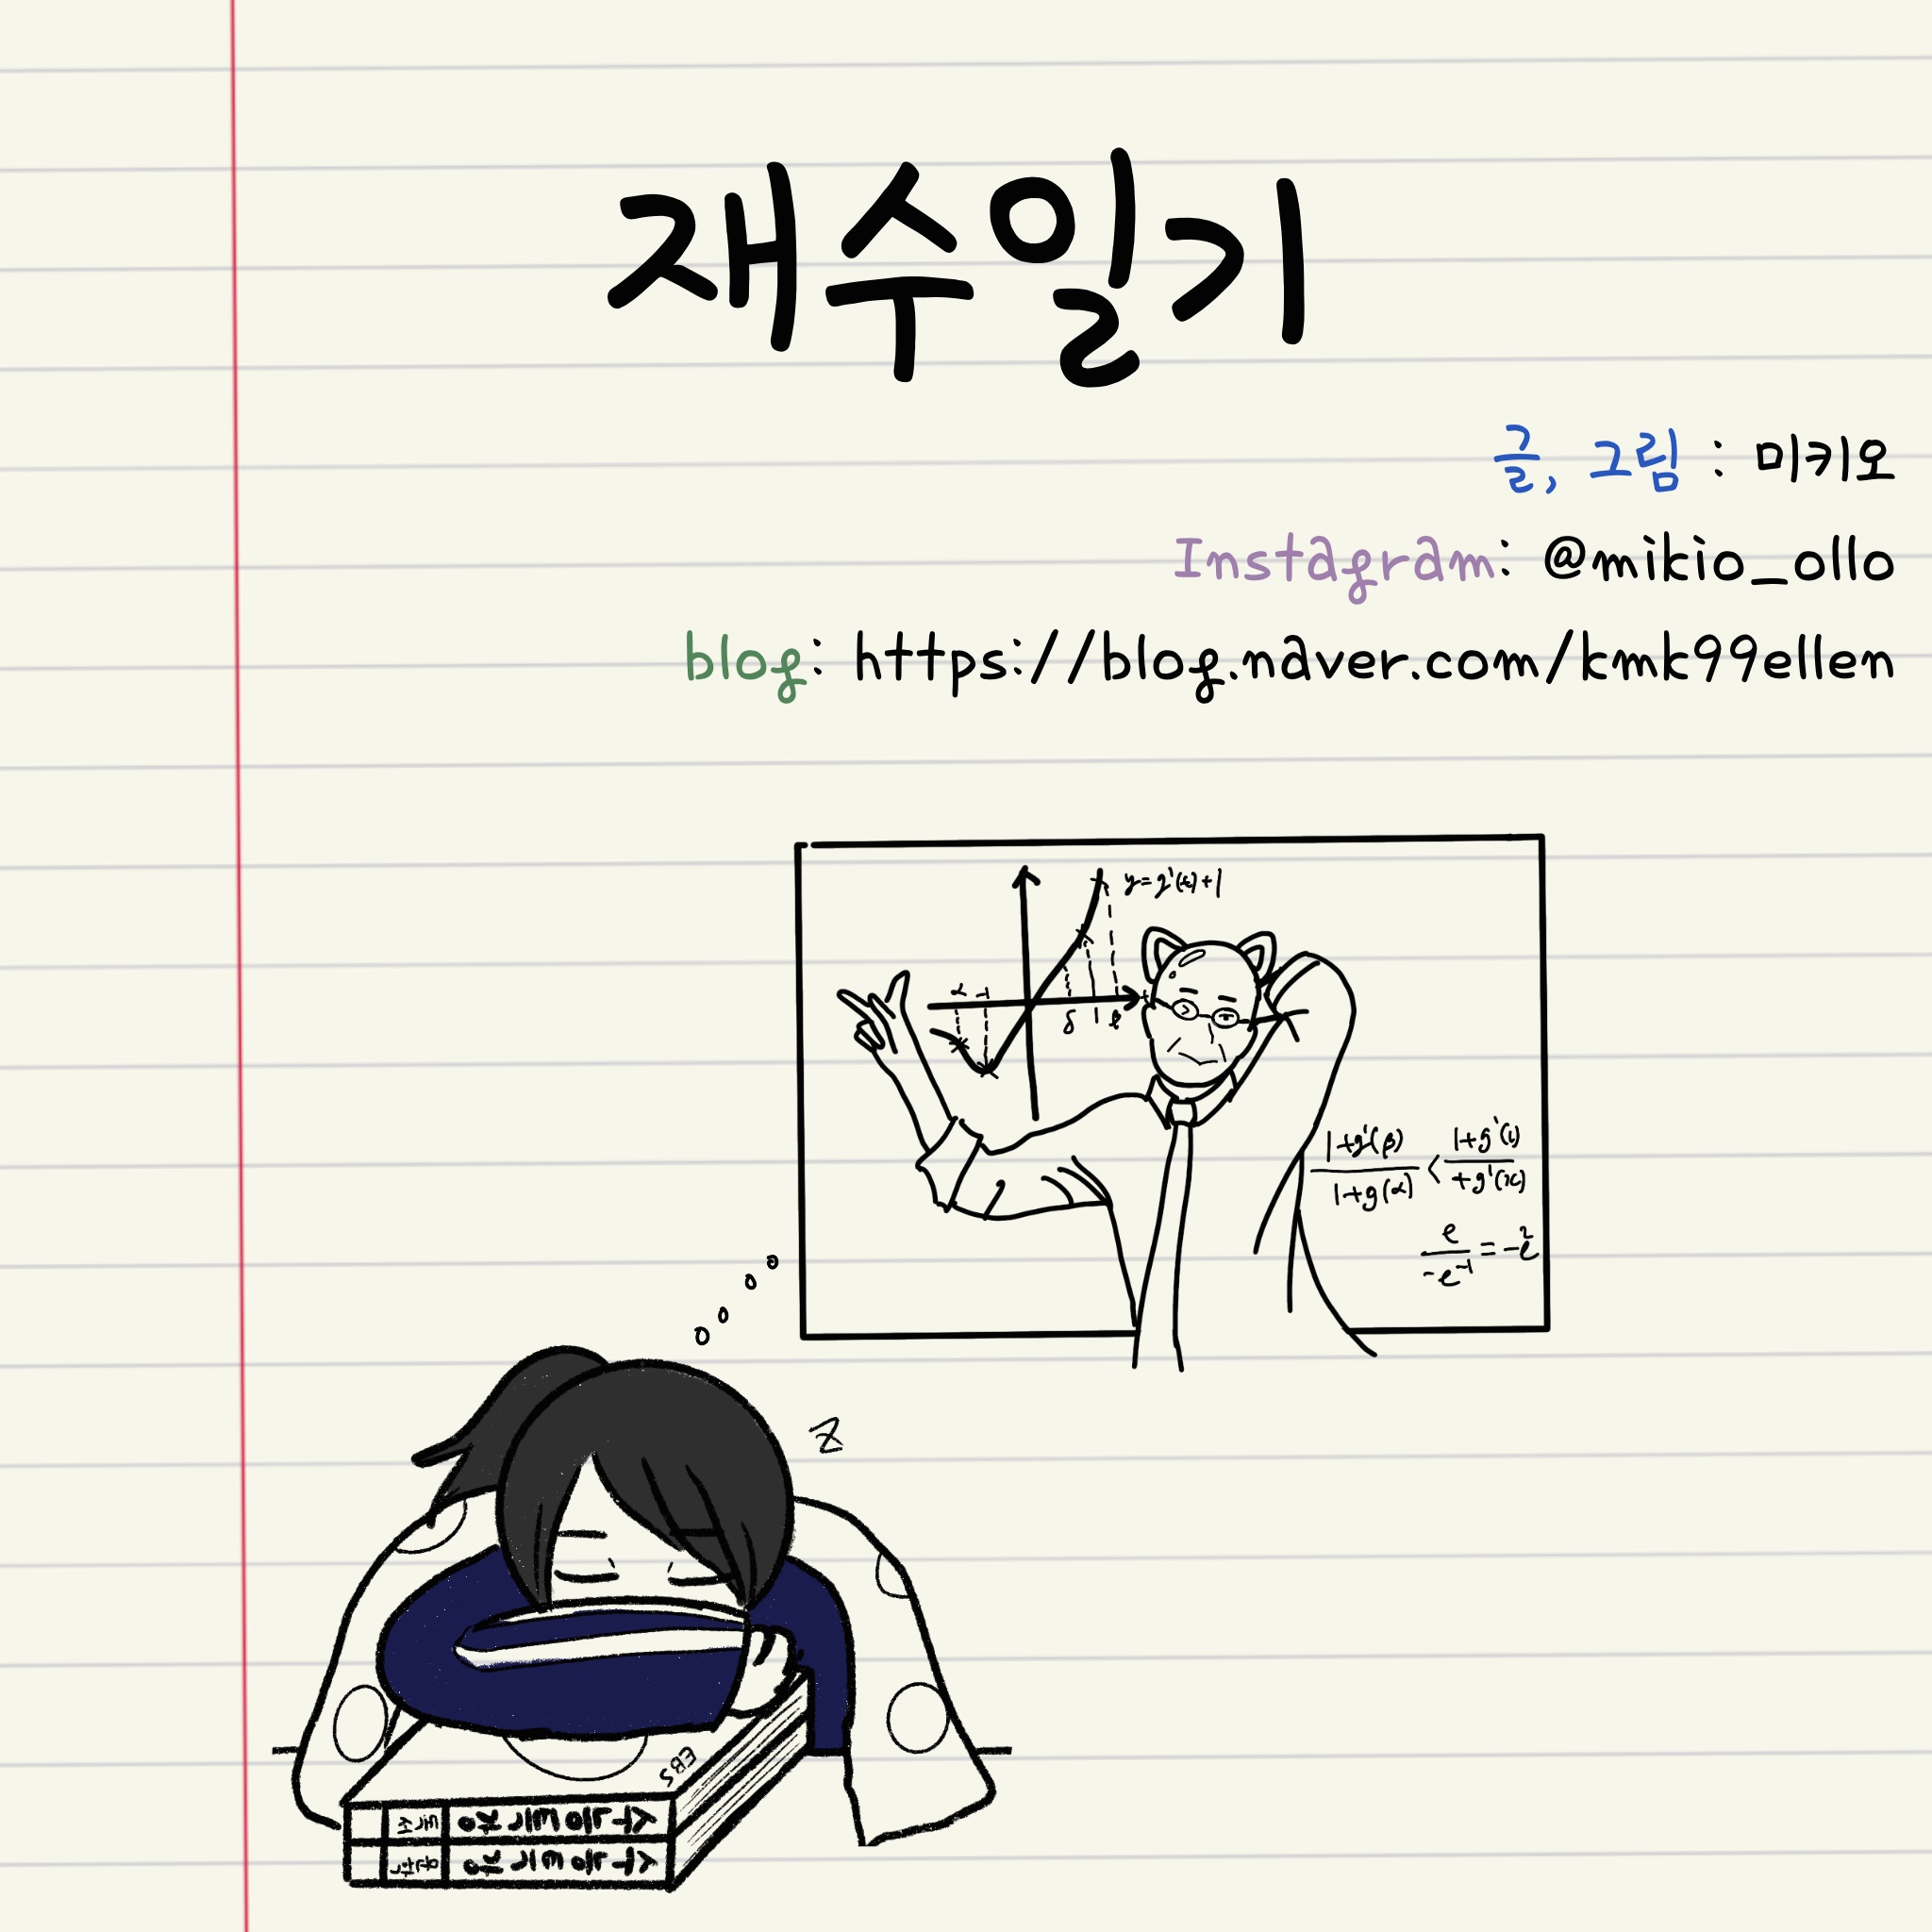 재수일기
글, 그림 : 미키오
Instagram: @mikio_ollo
blog: https://blog.naver.com/kmk99ellen
y=g'(t)+1
α -1
δ 1
1+g'(β)/1+g(α) < 1+g'(1)/+g'(x)
e/-e⁻¹ = -e²
z
EBS
수능특강
수능특강